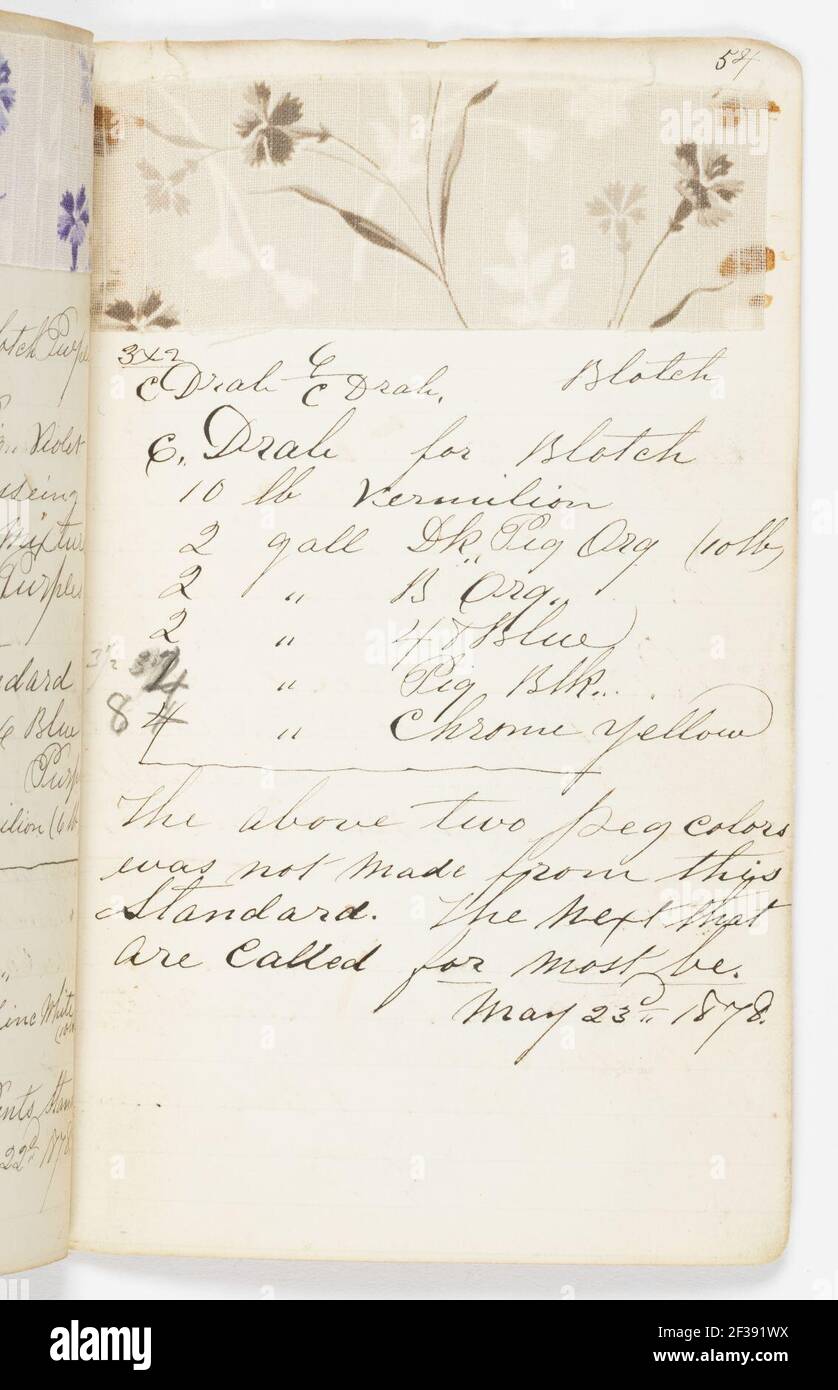 54
342
C Drab C/C Drab. Blotch
C. Drab for Blotch
10 lb Vermilion
2 gall Dk. Pig Org (10 lb)
2 " B Org.
2 " Blue
3½ " Pig Blk.
8 4 4 " Chrome Yellow
The above two peg colors
was not made from this
Standard. The next that
are called for most be.
May 23d 1878.
otch Purple
Violet
useing
Mixture
Purples
dard
Blue
Purp
ilion (6 lb
inc White
ents Stan
22d 1878
alamy
Image ID: 2F391WX
www.alamy.com